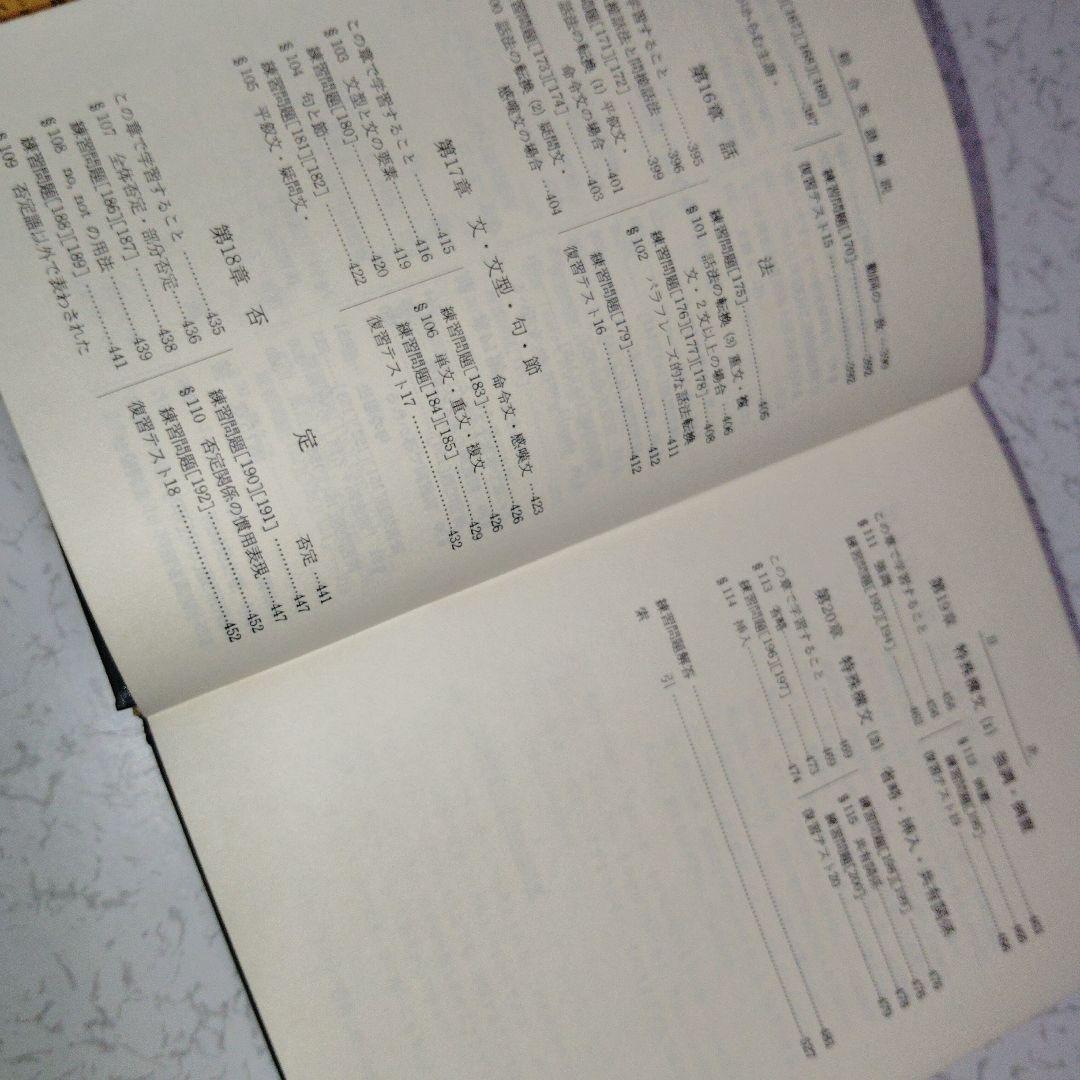 総合英語解説
[167][168][169] ……387
動詞の一致 …390
練習問題[170] ……392
復習テスト15 ……392
第16章 話法
学習すること ……395
話法と間接話法 ……396
問題[171][172] ……399
話法の転換 (1) 平叙文・
命令文の場合 …401
習問題[173][174] ……403
00 話法の転換 (2) 疑問文・
感嘆文の場合 …404
練習問題[175] ……405
§101 話法の転換 (3) 重文・複
文・2文以上の場合 …406
練習問題[176][177][178] …408
§102 パラフレーズ的な話法転換
……411
練習問題[179] ……412
復習テスト16 ……412
第17章 文・文型・句・節
この章で学習すること ……415
§103 文型と文の要素 ……416
練習問題[180] ……419
§104 句と節 ……420
練習問題[181][182] ……422
§105 平叙文・疑問文・
命令文・感嘆文 …423
練習問題[183] ……426
§106 単文・重文・複文 ……426
練習問題[184][185] ……429
復習テスト17 ……432
第18章 否定
この章で学習すること ……435
§107 全体否定・部分否定 …436
練習問題[186][187] ……438
§108 no, not の用法 ……439
練習問題[188][189] ……441
§109 否定語以外で表わされた
否定 …441
練習問題[190][191] ……447
§110 否定関係の慣用表現 …447
練習問題[192] ……452
復習テスト18 ……452
目次
第19章 特殊構文 (1) 強調・倒置
この章で学習すること
§111 強調
練習問題[193][194]
§112 倒置
練習問題[195]
復習テスト19
第20章 特殊構文 (2) 省略・挿入・共有関係
この章で学習すること ……469
§113 省略 ……469
練習問題[196][197] ……473
§114 挿入 ……474
練習問題[198][199] ……476
§115 共有関係 ……476
練習問題[200] ……478
復習テスト20 ……479
練習問題解答
索引 ……525